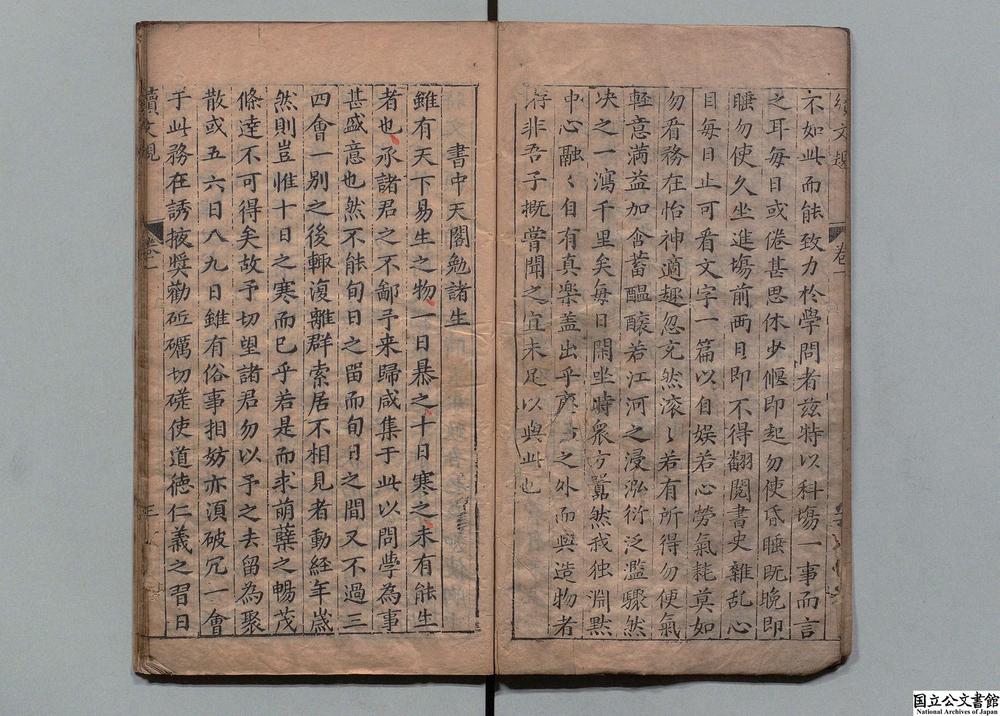 不如此而能致力於學問者茲特以科塲一事而言
之耳每日或倦甚思休少偃即起勿使昏睡既晚即
睡勿使久坐進塲前両日即不得翻閱書史雜乱心
目每日止可看文字一篇以自娱若心勞氣耗莫如
勿看務在怡神適趣忽充然滾〻若有所得勿使氣
輕意满益加含蓄醞釀若江河之浸泓衍泛濫驟然
决之一瀉千里矣每日閑坐時衆方囂然我独淵黙
中心融〻自有真楽盖出乎塵垢之外而與造物者
非吾子概嘗聞之宜未足以與此也
續文規
卷一
書中天閣勉諸生
雖有天下易生之物一日暴之十日寒之未有能生
者也承諸君之不鄙予来歸咸集于此以問學為事
甚盛意也然不能旬日之留而旬日之間又不過三
四會一別之後輙復離群索居不相見者動経年歲
然則豈惟十日之寒而已乎若是而求萌蘖之暢茂
條達不可得矣故予切望諸君勿以予之去留為聚
散或五六日八九日雖有俗事相妨亦湏破冗一會
于此務在誘掖奨勸砥礪切磋使道徳仁義之習日
續文規
卷一
国立公文書館
National Archives of Japan